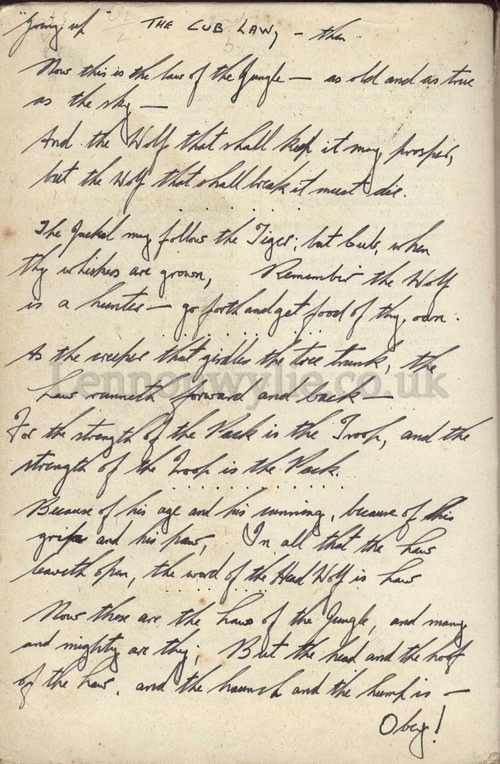 "Going up" THE CUB LAW, - then
Now this is the law of the Jungle — as old and as true
as the sky —
And the Wolf that shall keep it may prosper,
but the Wolf that shall break it must die.
The Jackal may follow the Tiger, but Cub, when
thy whiskers are grown, Remember the Wolf
is a hunter — go forth and get food of thy own.
As the creeper that girdles the tree trunk, the
Law runneth forward and back —
For the strength of the Pack is the Troop, and the
strength of the Troop is the Pack.
Because of his age and his cunning, because of his
gripe and his paw, In all that the Law
leaveth open, the word of the Head Wolf is Law
Now these are the Laws of the Jungle, and many
and mighty are they. But the head and the hoof
of the Law, and the haunch and the hump is —
Obey!
Lennonwylie.co.uk